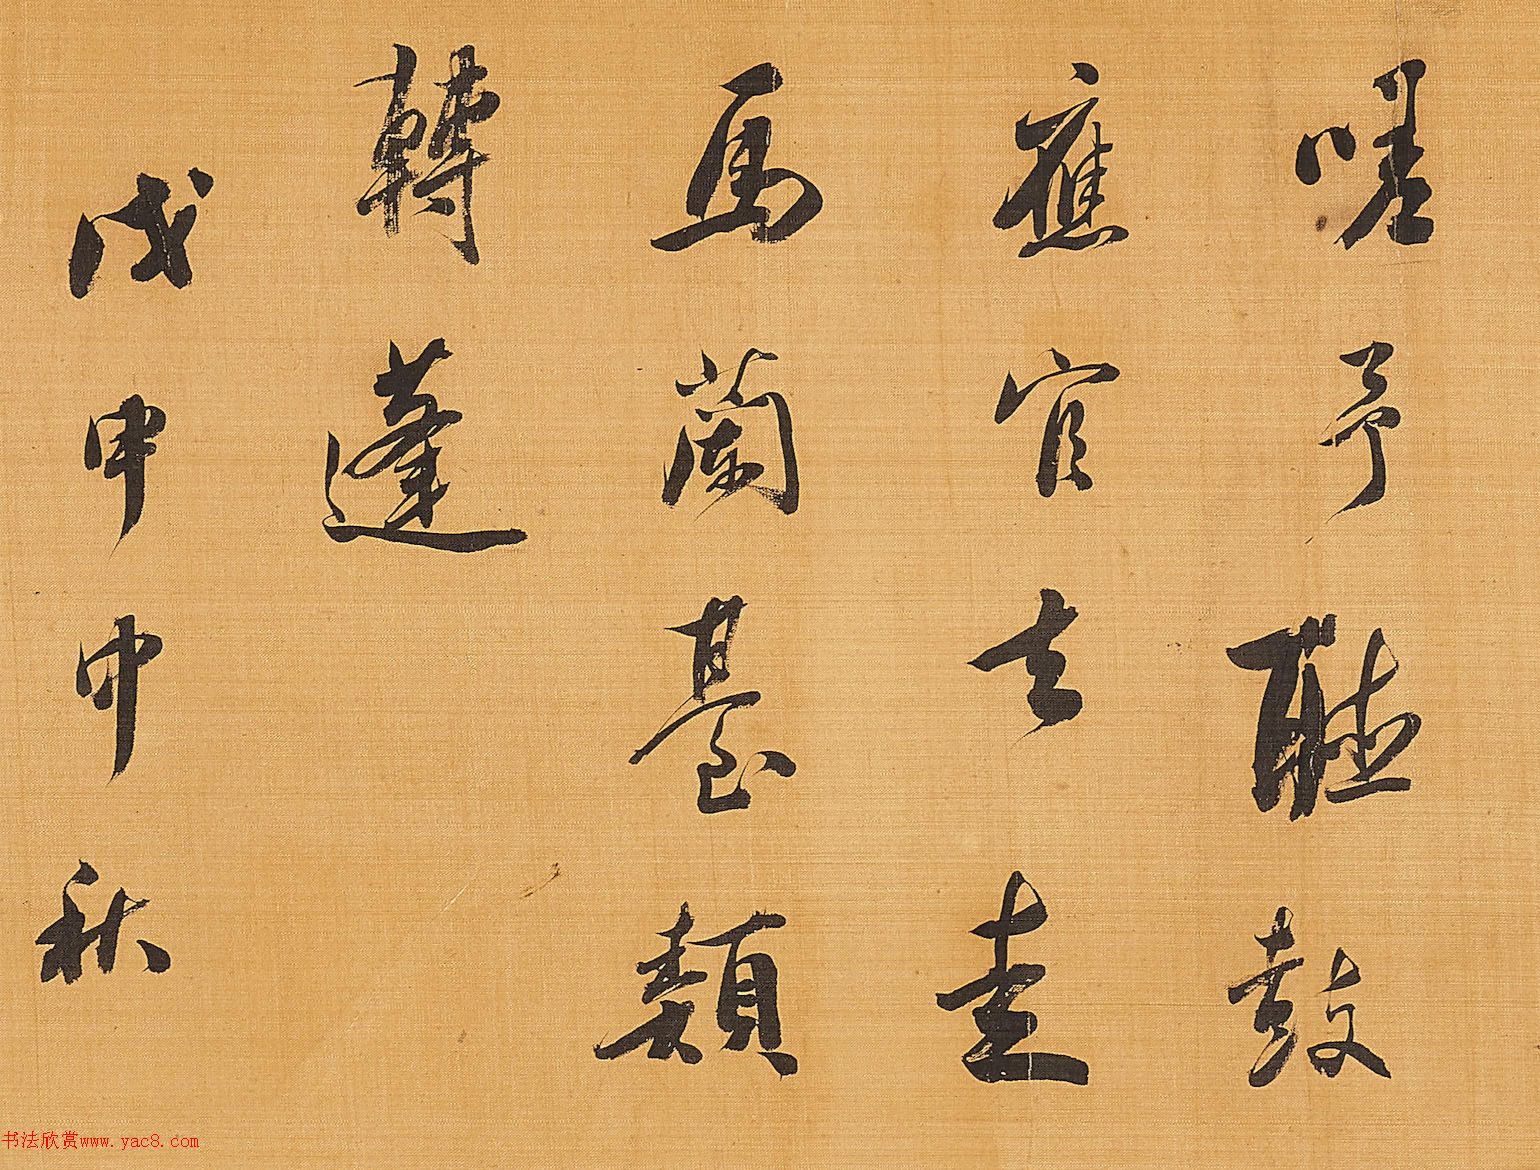 嗟予聽鼓
應官去走
馬蘭臺類
轉蓬
戊申中秋
书法欣赏www.yac8.com